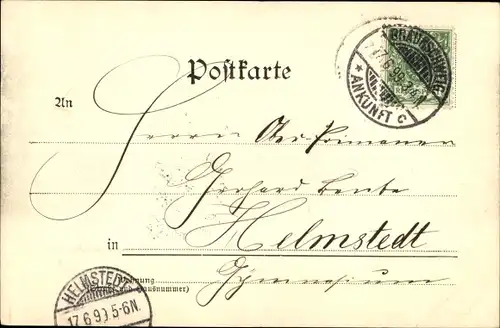 Postkarte
BRAUNSCHWEIG
17.6.99
* ANKUNFT c
An
Herrn Ober-Primaner
Gerhard
in Helmstedt
Gymnasium
Wohnung
(Straße und Hausnummer)
HELMSTEDT
17.6.99 5-6N.